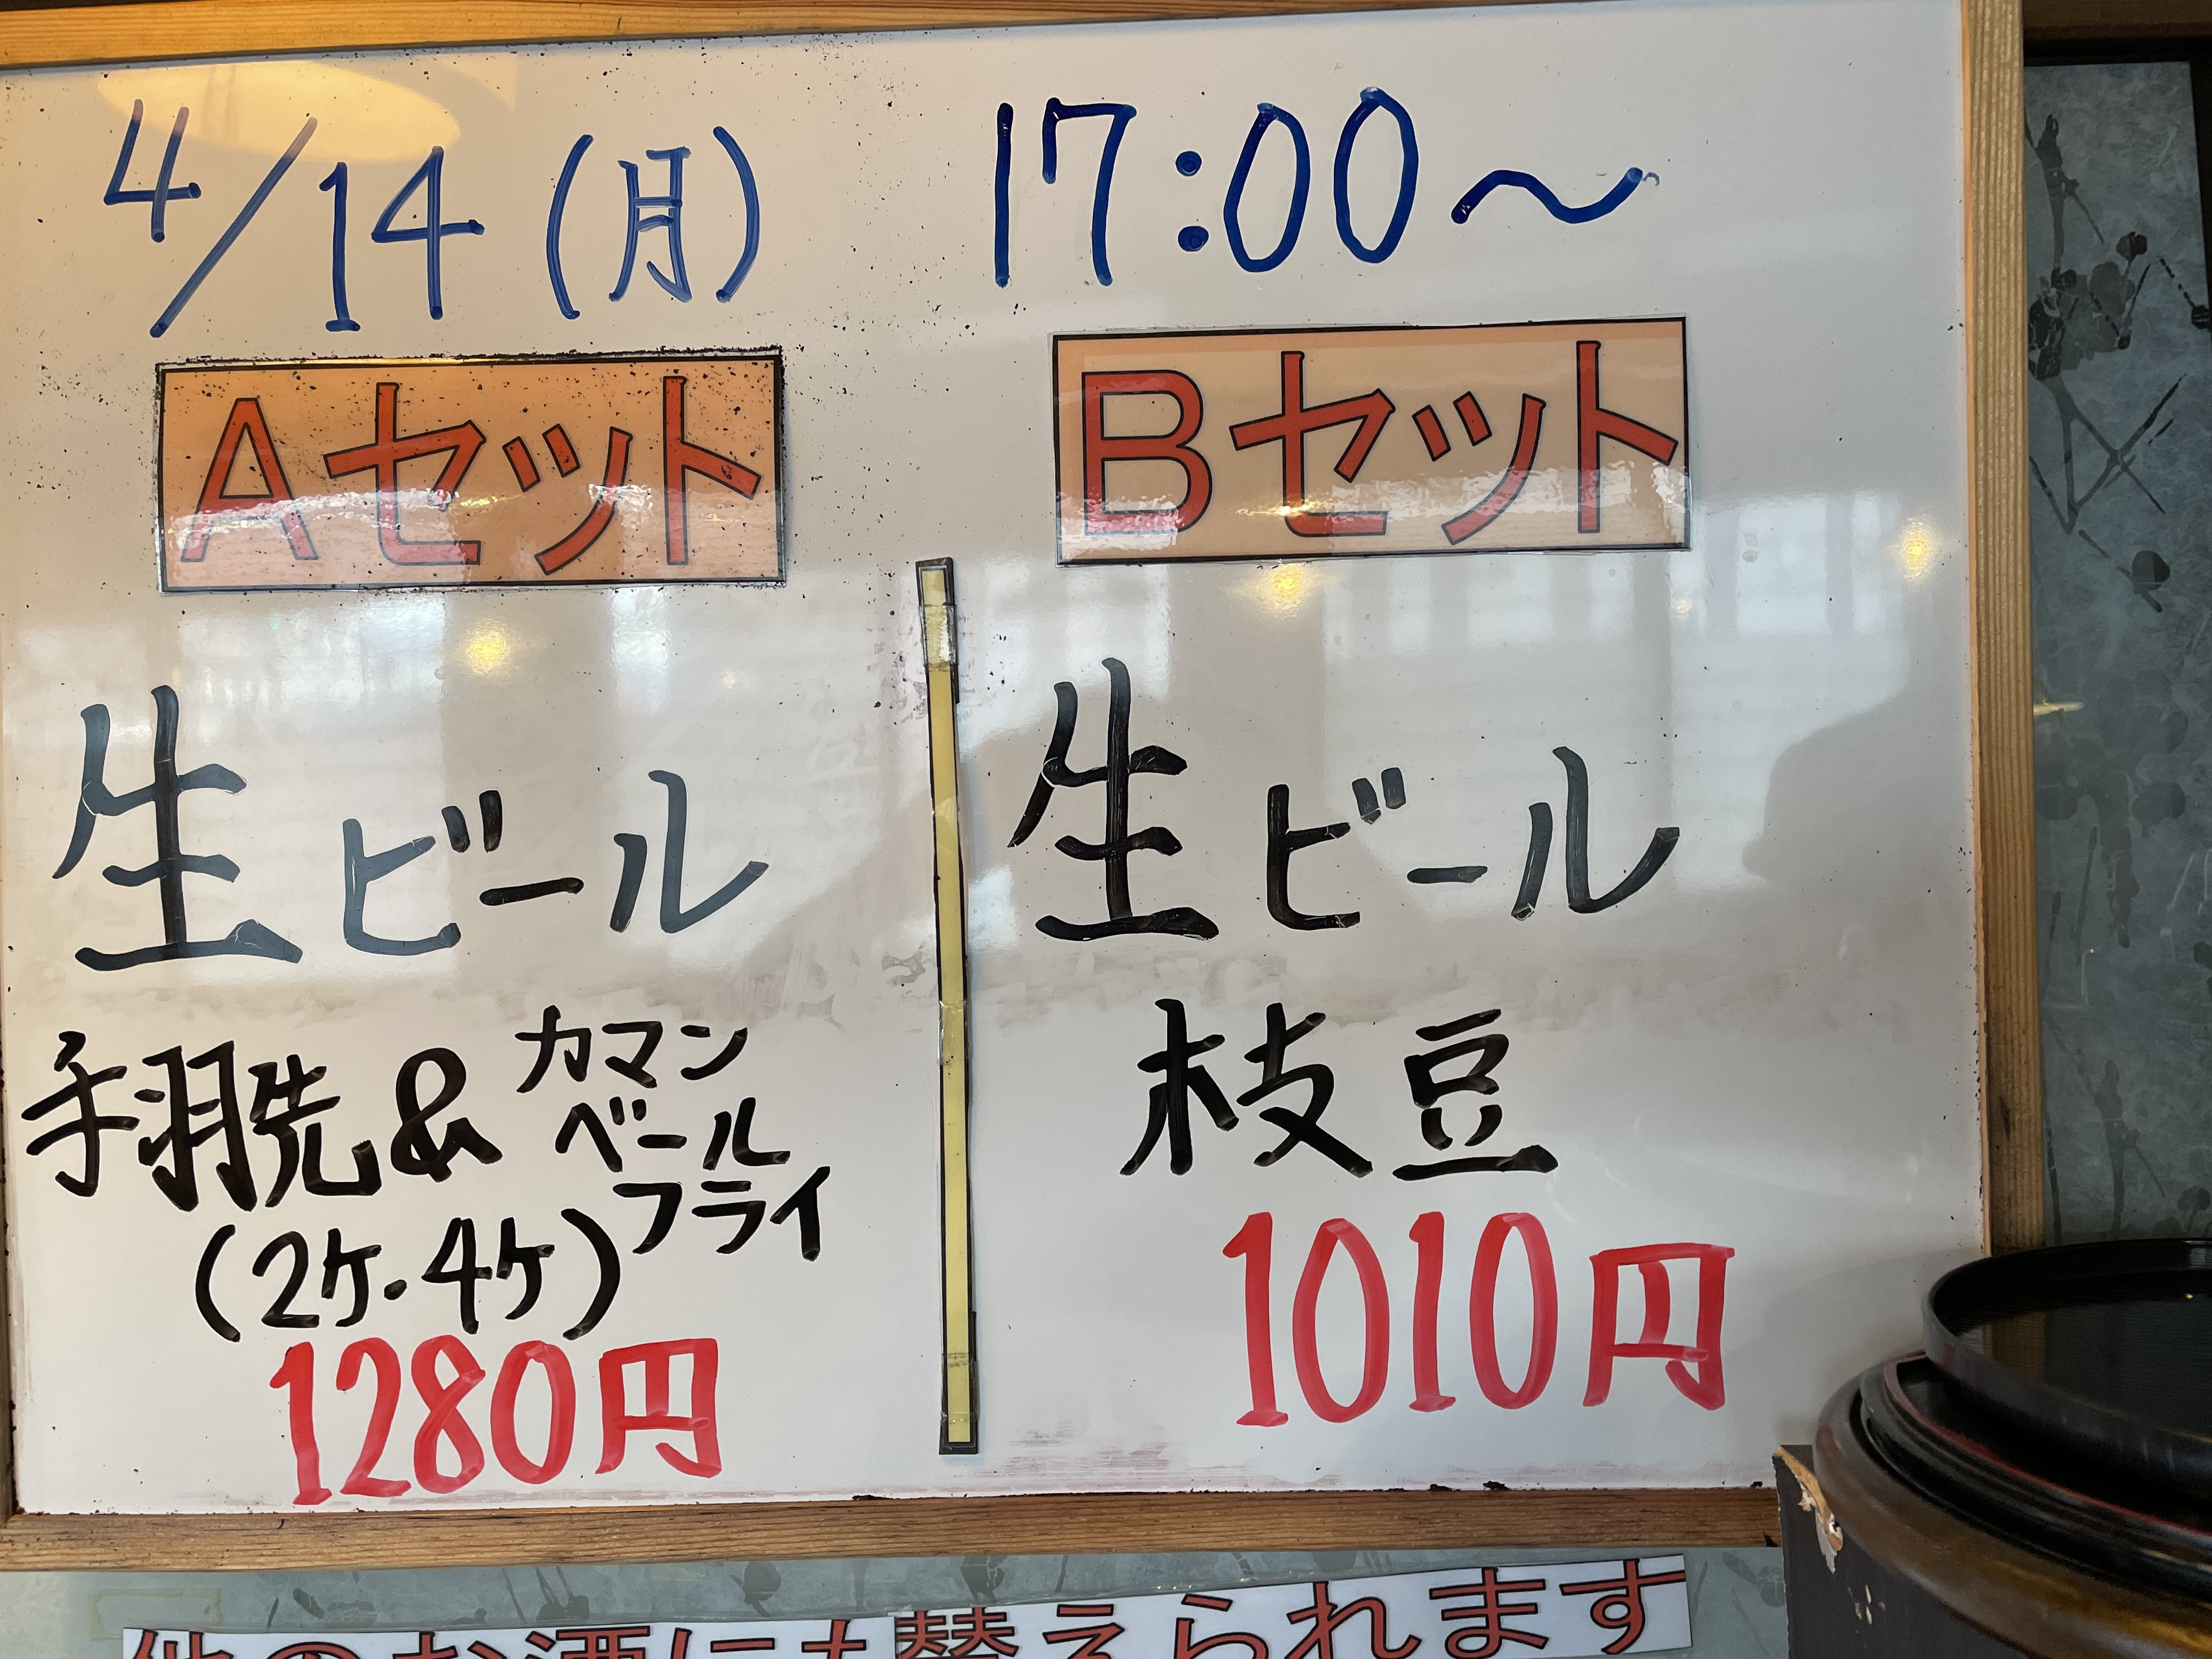 4/14(月) 17:00～
Aセット
生ビール
手羽先&カマンベールフライ
(2ケ・4ケ)
1280円
Bセット
生ビール
枝豆
1010円
他のお酒にも替えられます